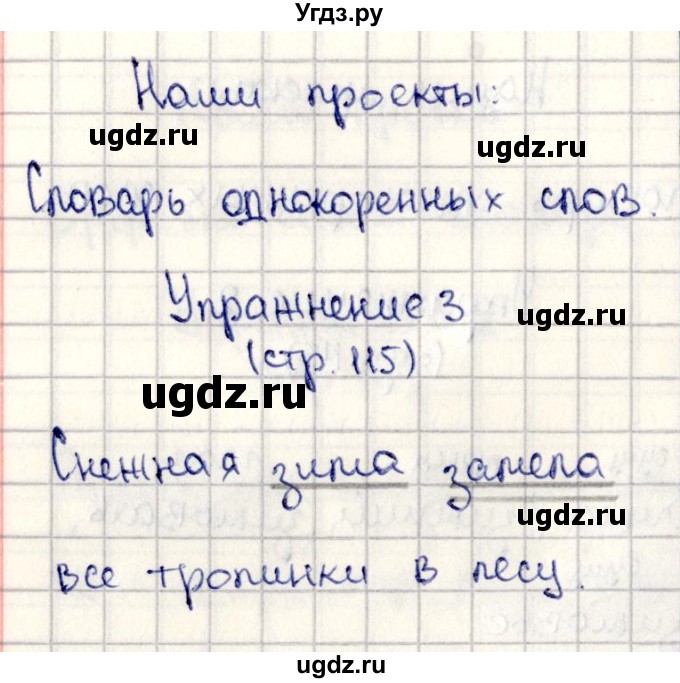 Угдз.ру
Наши проекты:
ugdz.ru
ugdz.ru
Словарь однокоренных слов.
Упражнение 3
ugdz.ru
(стр. 115)
ugdz.ru
Снежная зима замела
ugdz.ru
все тропинки в лесу.
ugdz.ru